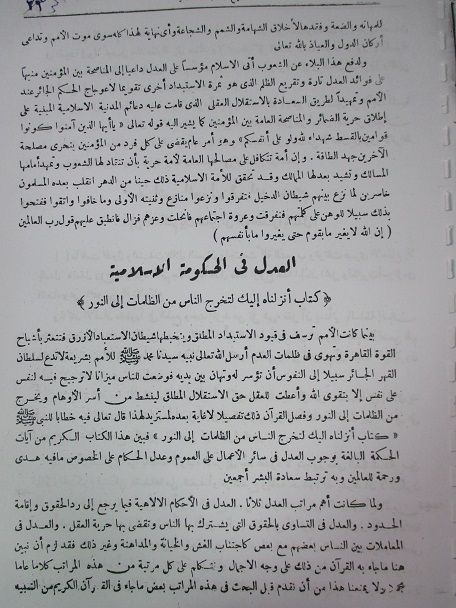 للمهانة والضعة وفقدها لأخلاق الشهامة والشمم والشجاعة وأي نهاية لهذا كله سوى موت الأمم وتداعي
أركان الدول والعياذ بالله تعالى
ولدفع هذا البلاء عن الشعوب أتى الاسلام مؤسساً على العدل داعيا إلى المناصحة بين المؤمنين منبهاً
على فوائد العدل تارة وتقريع الظلم الذي هو ثمرة الاستبداد أخرى تقويما لاعوجاج الحكم الجائر عند
الأمم وتمهيداً لطريق السعادة بالاستقلال العقلي الذي قامت عليه دعائم المدنية الاسلامية المبنية على
إطلاق حرية الضمائر والمناصحة العامة بين المؤمنين كما يشير اليه قوله تعالى « ياأيها الذين آمنوا كونوا
قوامين بالقسط شهداء لله ولو على أنفسكم » وهو أمر عام يقضي على كل فرد من المؤمنين بتحري مصلحة
الآخرين جهد الطاقة . وإن أمة تتكافل على مصالحها العامة لأمة حرية بأن تنقاد لها الشعوب وتمهد أمامها
المسالك وتشيد بعدلها الممالك وقد تحقق للأمة الاسلامية ذلك حينا من الدهر انقلب بعده المسلمون
خاسرين لما نزغ بينهم شيطان الدخيل فتفرقوا وتنزعوا منازع وثنيته الأولى وما خافوا واتقوا ففتحوا
بذلك سبيلا للوهن على كلمتهم فتفرقت وعروة اجتماعهم فانحلت وعزهم فزال فانطبق عليهم قول رب العالمين
( إن الله لا يغير ما بقوم حتى يغيروا ما بأنفسهم )
العدل في الحكومة الاسلامية
﴿ كتاب أنزلناه إليك لتخرج الناس من الظلمات إلى النور ﴾
بينما كانت الأمم ترسف في قيود الاستبداد المطلق ويتخبطها شيطان الاستعباد الأزرق فتتعثر بأشباح
القوة القاهرة وتهوى في ظلمات العدم أرسل الله تعالى نبيه سيدنا محمد ﷺ للأمم بشريعة لا تدع لسلطان
القهر الجائر سبيلا إلى النفوس أن تؤسر له وتهان بين يديه فوضعت للناس ميزانا لا ترجيح فيه لنفس
على نفس إلا بتقوى الله وأعطت للعقل حق الاستقلال المطلق لينشط من أسر الأوهام ويخرج
من الظلمات إلى النور وفصل القرآن ذلك تفصيلا لا غاية بعده لمستزيد لهذا قال تعالى فيه خطابا للنبي ﷺ
« كتاب أنزلناه اليك لتخرج الناس من الظلمات إلى النور » فبين هذا الكتاب الكريم من آيات
الحكمة البالغة بوجوب العدل في سائر الأعمال على العموم وعدل الحكام على الخصوص مافيه هدى
ورحمة للعالمين وبه ترتبط سعادة البشر أجمعين
ولما كانت أهم مراتب العدل ثلاثا . العدل في الأحكام الالاهية فيما يرجع إلى رد الحقوق وإقامة
الحدود . والعدل في التساوي بالحقوق التي يشترك بها الناس وتقضي بها حرية العقل . والعدل في
المعاملات بين الناس بعضهم مع بعض كاجتناب الغش والخيانة والمداهنة وغير ذلك فقد لزم أن نبين
هنا ماجاء به القرآن من ذلك على وجه الاجمال ونتكلم على كل مرتبة من هذه المراتب كلاما عاما
ولا يمنعنا هذا من أن نقدم قبل البحث في هذه المراتب بعض ماجاء في القرآن الكريم من التنبيه